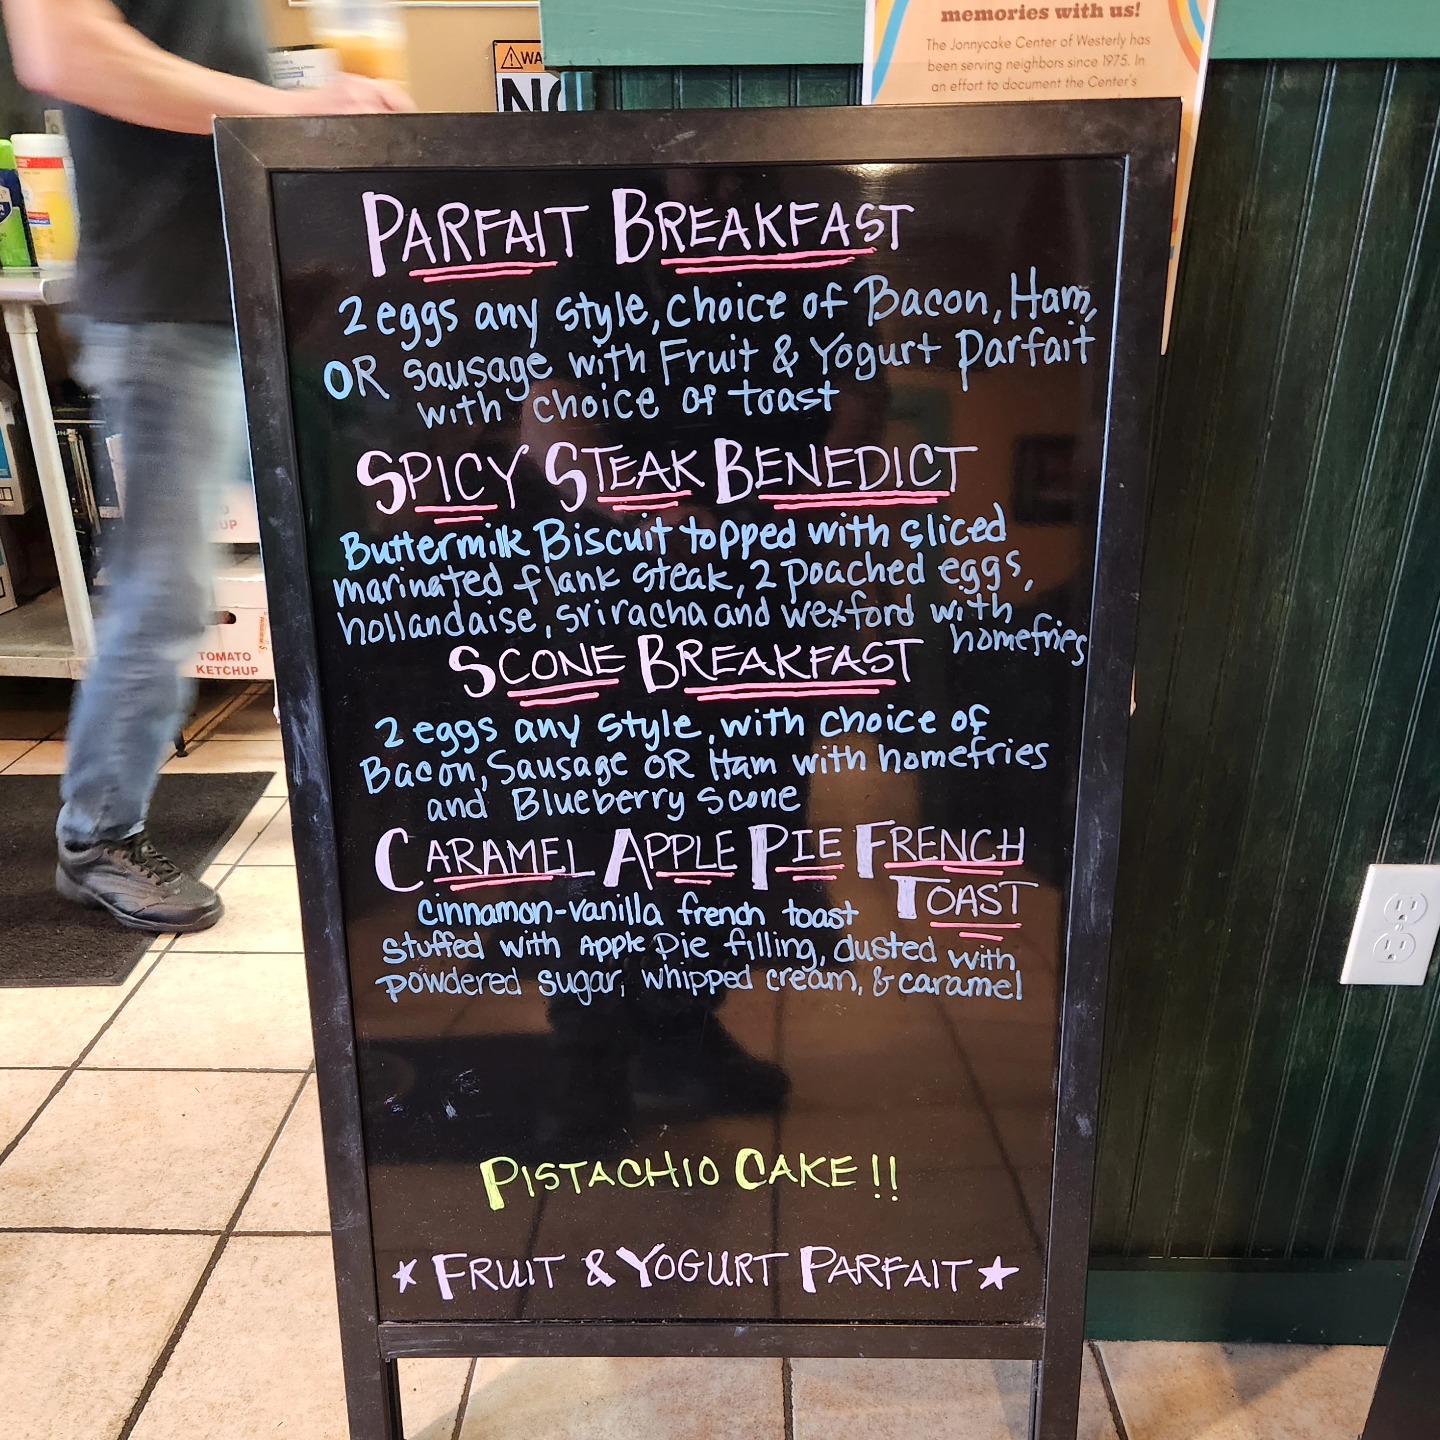 memories with us!
The Jonnycake Center of Westerly has
been serving neighbors since 1975. In
an effort to document the Center's
PARFAIT BREAKFAST
2 eggs any style, choice of Bacon, Ham,
OR sausage with Fruit & Yogurt parfait
with choice of toast
SPICY STEAK BENEDICT
Buttermilk Biscuit topped with sliced
marinated flank steak, 2 poached eggs,
hollandaise, sriracha and wexford with
homefries
SCONE BREAKFAST
2 eggs any style, with choice of
Bacon, Sausage OR Ham with homefries
and Blueberry Scone
CARAMEL APPLE PIE FRENCH
TOAST
cinnamon-vanilla french toast
stuffed with Apple Pie filling, dusted with
powdered sugar, whipped cream, & caramel
PISTACHIO CAKE!!
FRUIT & YOGURT PARFAIT
TOMATO
KETCHUP